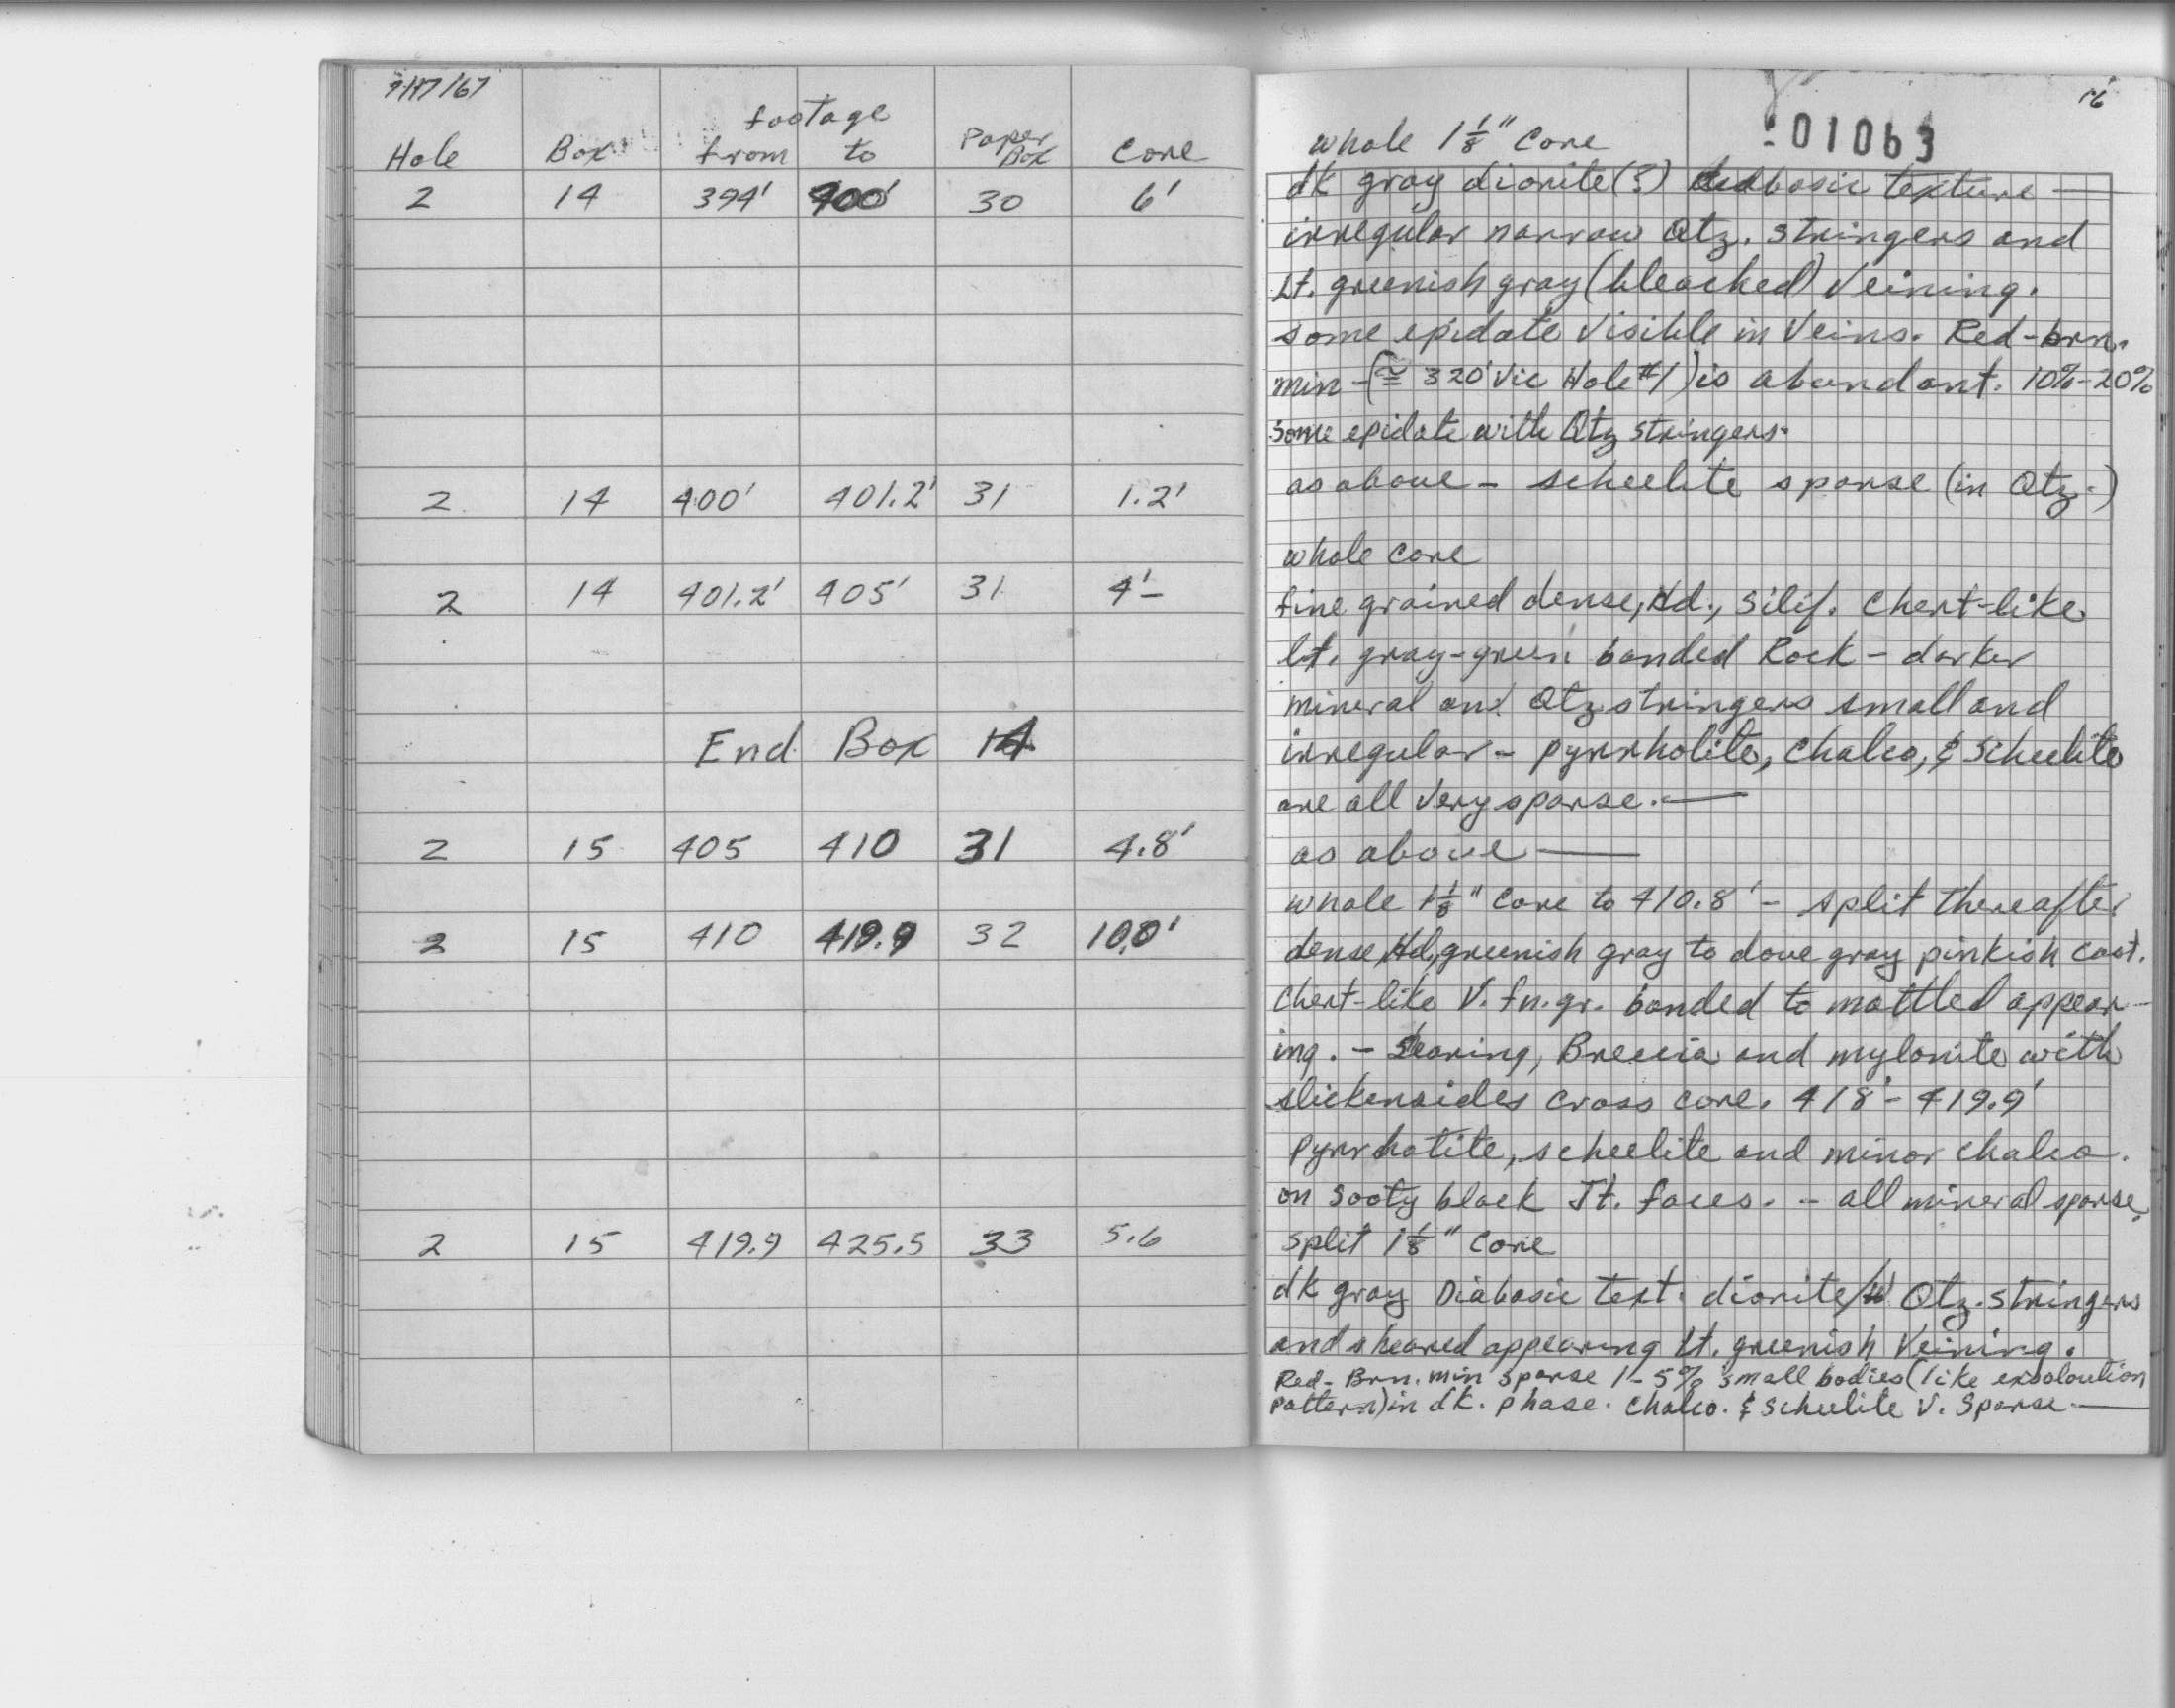 9/17/67
footage
Hole Box from to Paper Box Core
2 14 394' 400' 30 6'
2 14 400' 401.2' 31 1.2'
2 14 401.2' 405' 31 4'-
End Box 14
2 15 405 410 31 4.8'
2 15 410 419.9 32 10.0'
2 15 419.9 425.5 33 5.6
16
-01063
whole 1 1/8" Core
dk gray diorite(?) diabasic texture —
irregular narrow Qtz. stringers and
Lt. greenish gray (bleached) Veining.
some epidote visible in Veins. Red-brn.
min - (≅ 320' Vic Hole #1) is abundant. 10%-20%
some epidote with Qtz stringers.
as above - scheelite sparse (in Qtz.)
whole core
fine grained dense, Hd., Silif. Chert-like
lt. gray-green banded Rock - darker
mineral and Qtz stringers small and
irregular - pyrrholite, Chalco, & Scheelite
are all Very sparse. —
as above —
whole 1 1/8" Core to 410.8' - split thereafter
dense, Hd., greenish gray to dove gray pinkish cast.
Chert-like V. fn. gr. banded to mottled appear-
ing. - Shearing, Breccia and mylonite with
slickensides cross core. 418' - 419.9'
Pyrrhotite, scheelite and minor chalco.
on sooty black Jt. faces. - all mineral sparse.
split 1 1/8" Core
dk gray Diabasic text. diorite/w Qtz. stringers
and sheared appearing Lt. greenish Veining.
Red-Brn. min sparse 1-5% small bodies (like exsoloution
pattern) in dk. phase. Chalco. & Scheelite V. Sparse. —